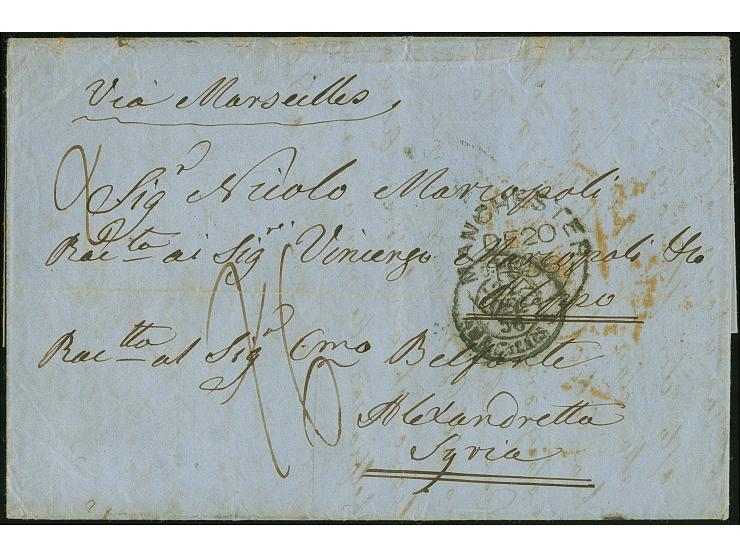 Via Marseilles
Sigr Nicolo Marcopoli
Racta ai Sigri Vincenzo Marcopoli & Co
Aleppo
Ractta al Sigr Cmo Belfonte
Alexandretta
Syria
MANCHESTER
DE 20
56